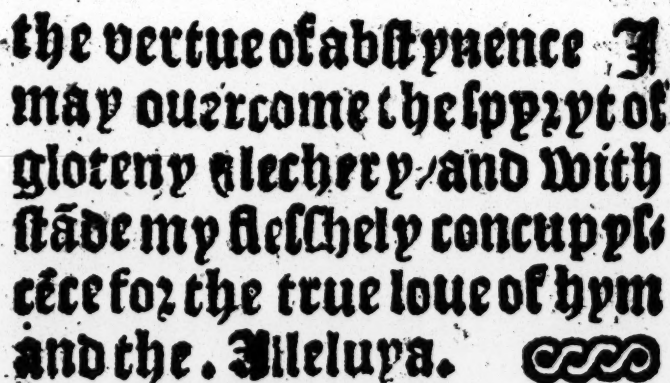 the vertue of abstynence I
may ouercome the spyryt of
gloteny & lechery / and with
stāde my flesshely concupys⸗
cēce for the true loue of hym
and the . Alleluya.